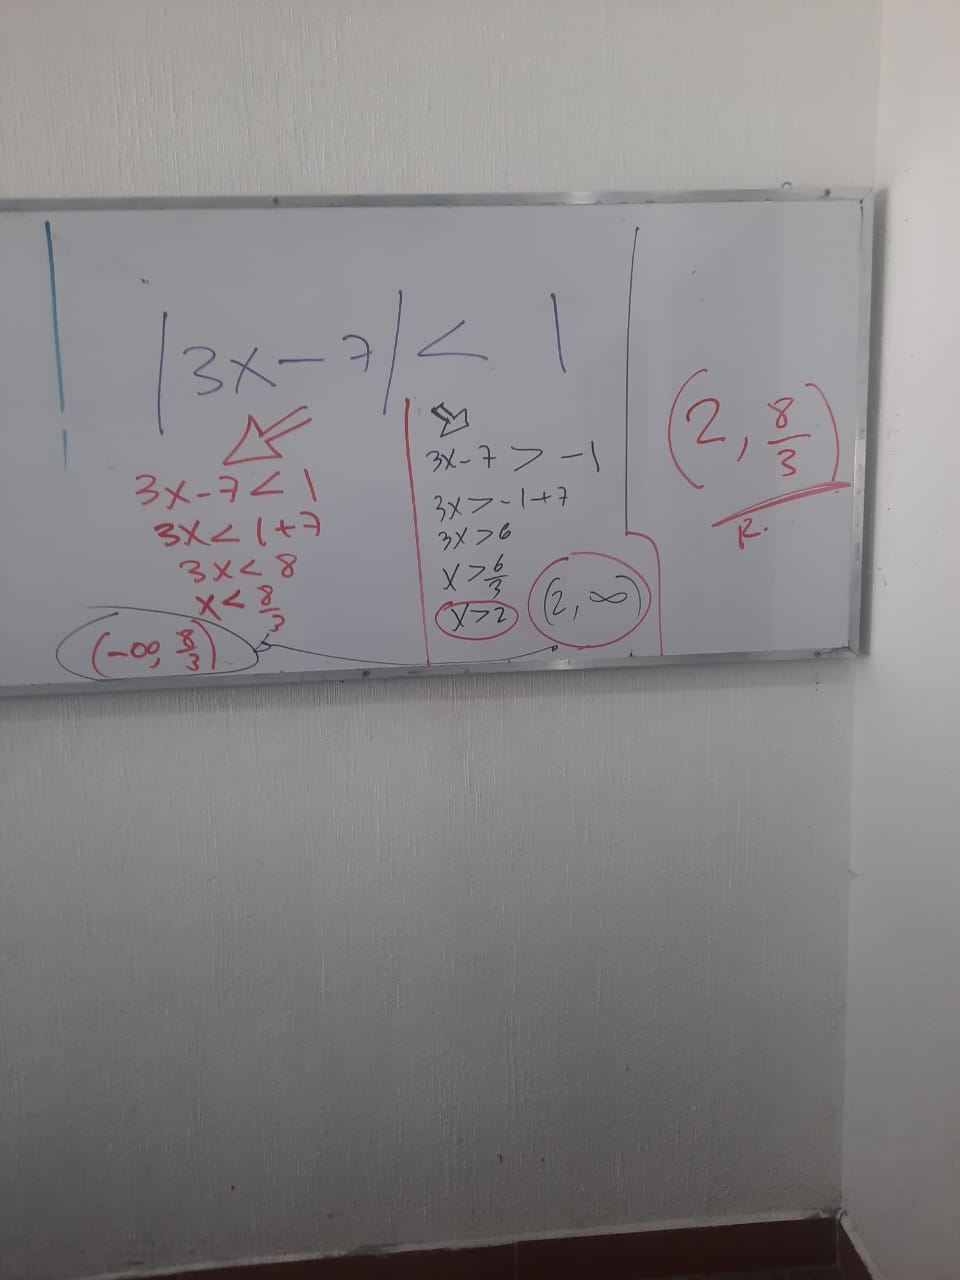 |3x-7| < 1
3x-7 < 1
3x < 1+7
3x < 8
x < 8/3
(-∞, 8/3)
3x-7 > -1
3x > -1+7
3x > 6
x > 6/3
x > 2
(2, ∞)
(2, 8/3)
R.